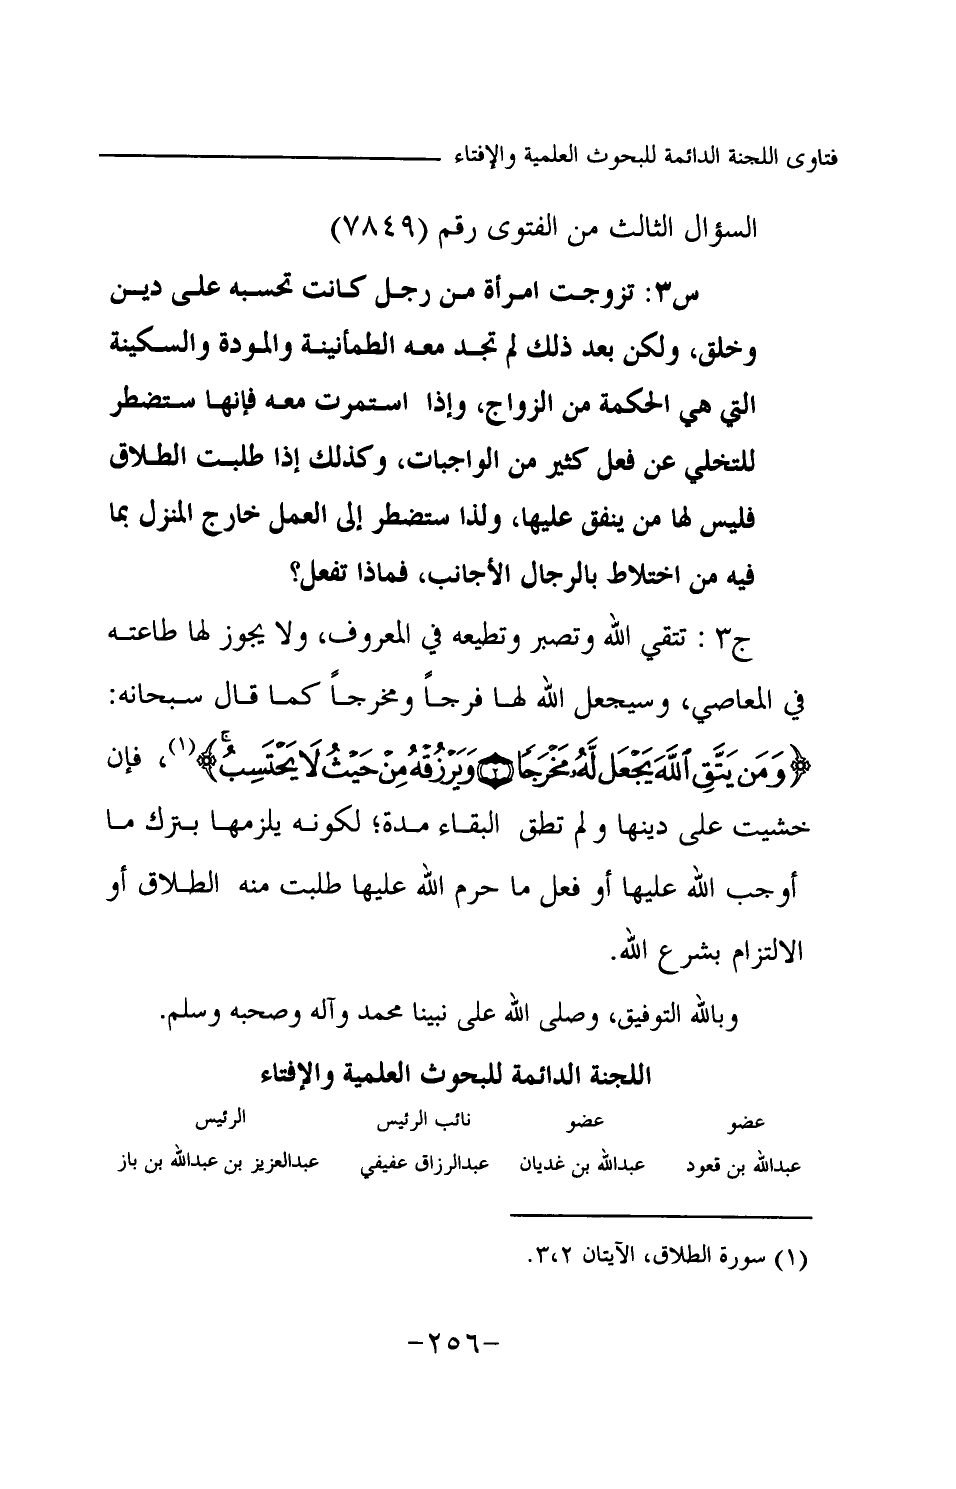 فتاوى اللجنة الدائمة للبحوث العلمية والإفتاء
السؤال الثالث من الفتوى رقم (٧٨٤٩)
س٣: تزوجت امرأة من رجل كانت تحسبه على دين
وخلق، ولكن بعد ذلك لم تجد معه الطمأنينة والمودة والسكينة
التي هي الحكمة من الزواج، وإذا استمرت معه فإنها ستضطر
للتخلي عن فعل كثير من الواجبات، وكذلك إذا طلبت الطلاق
فليس لها من ينفق عليها، ولذا ستضطر إلى العمل خارج المنزل بما
فيه من اختلاط بالرجال الأجانب، فماذا تفعل؟
ج٣ : تتقي الله وتصبر وتطيعه في المعروف، ولا يجوز لها طاعته
في المعاصي، وسيجعل الله لها فرجاً ومخرجاً كما قال سبحانه:
﴿وَمَن يَتَّقِ ٱللَّهَ يَجْعَل لَّهُۥ مَخْرَجًا ٢ وَيَرْزُقْهُ مِنْ حَيْثُ لَا يَحْتَسِبُۚ﴾(١)، فإن
خشيت على دينها ولم تطق البقاء مدة؛ لكونه يلزمها بترك ما
أوجب الله عليها أو فعل ما حرم الله عليها طلبت منه الطلاق أو
الالتزام بشرع الله.
وبالله التوفيق، وصلى الله على نبينا محمد وآله وصحبه وسلم.
اللجنة الدائمة للبحوث العلمية والإفتاء
عضو عضو نائب الرئيس الرئيس
عبدالله بن قعود عبدالله بن غديان عبدالرزاق عفيفي عبدالعزيز بن عبدالله بن باز
(١) سورة الطلاق، الآيتان ٣،٢.
-٢٥٦-